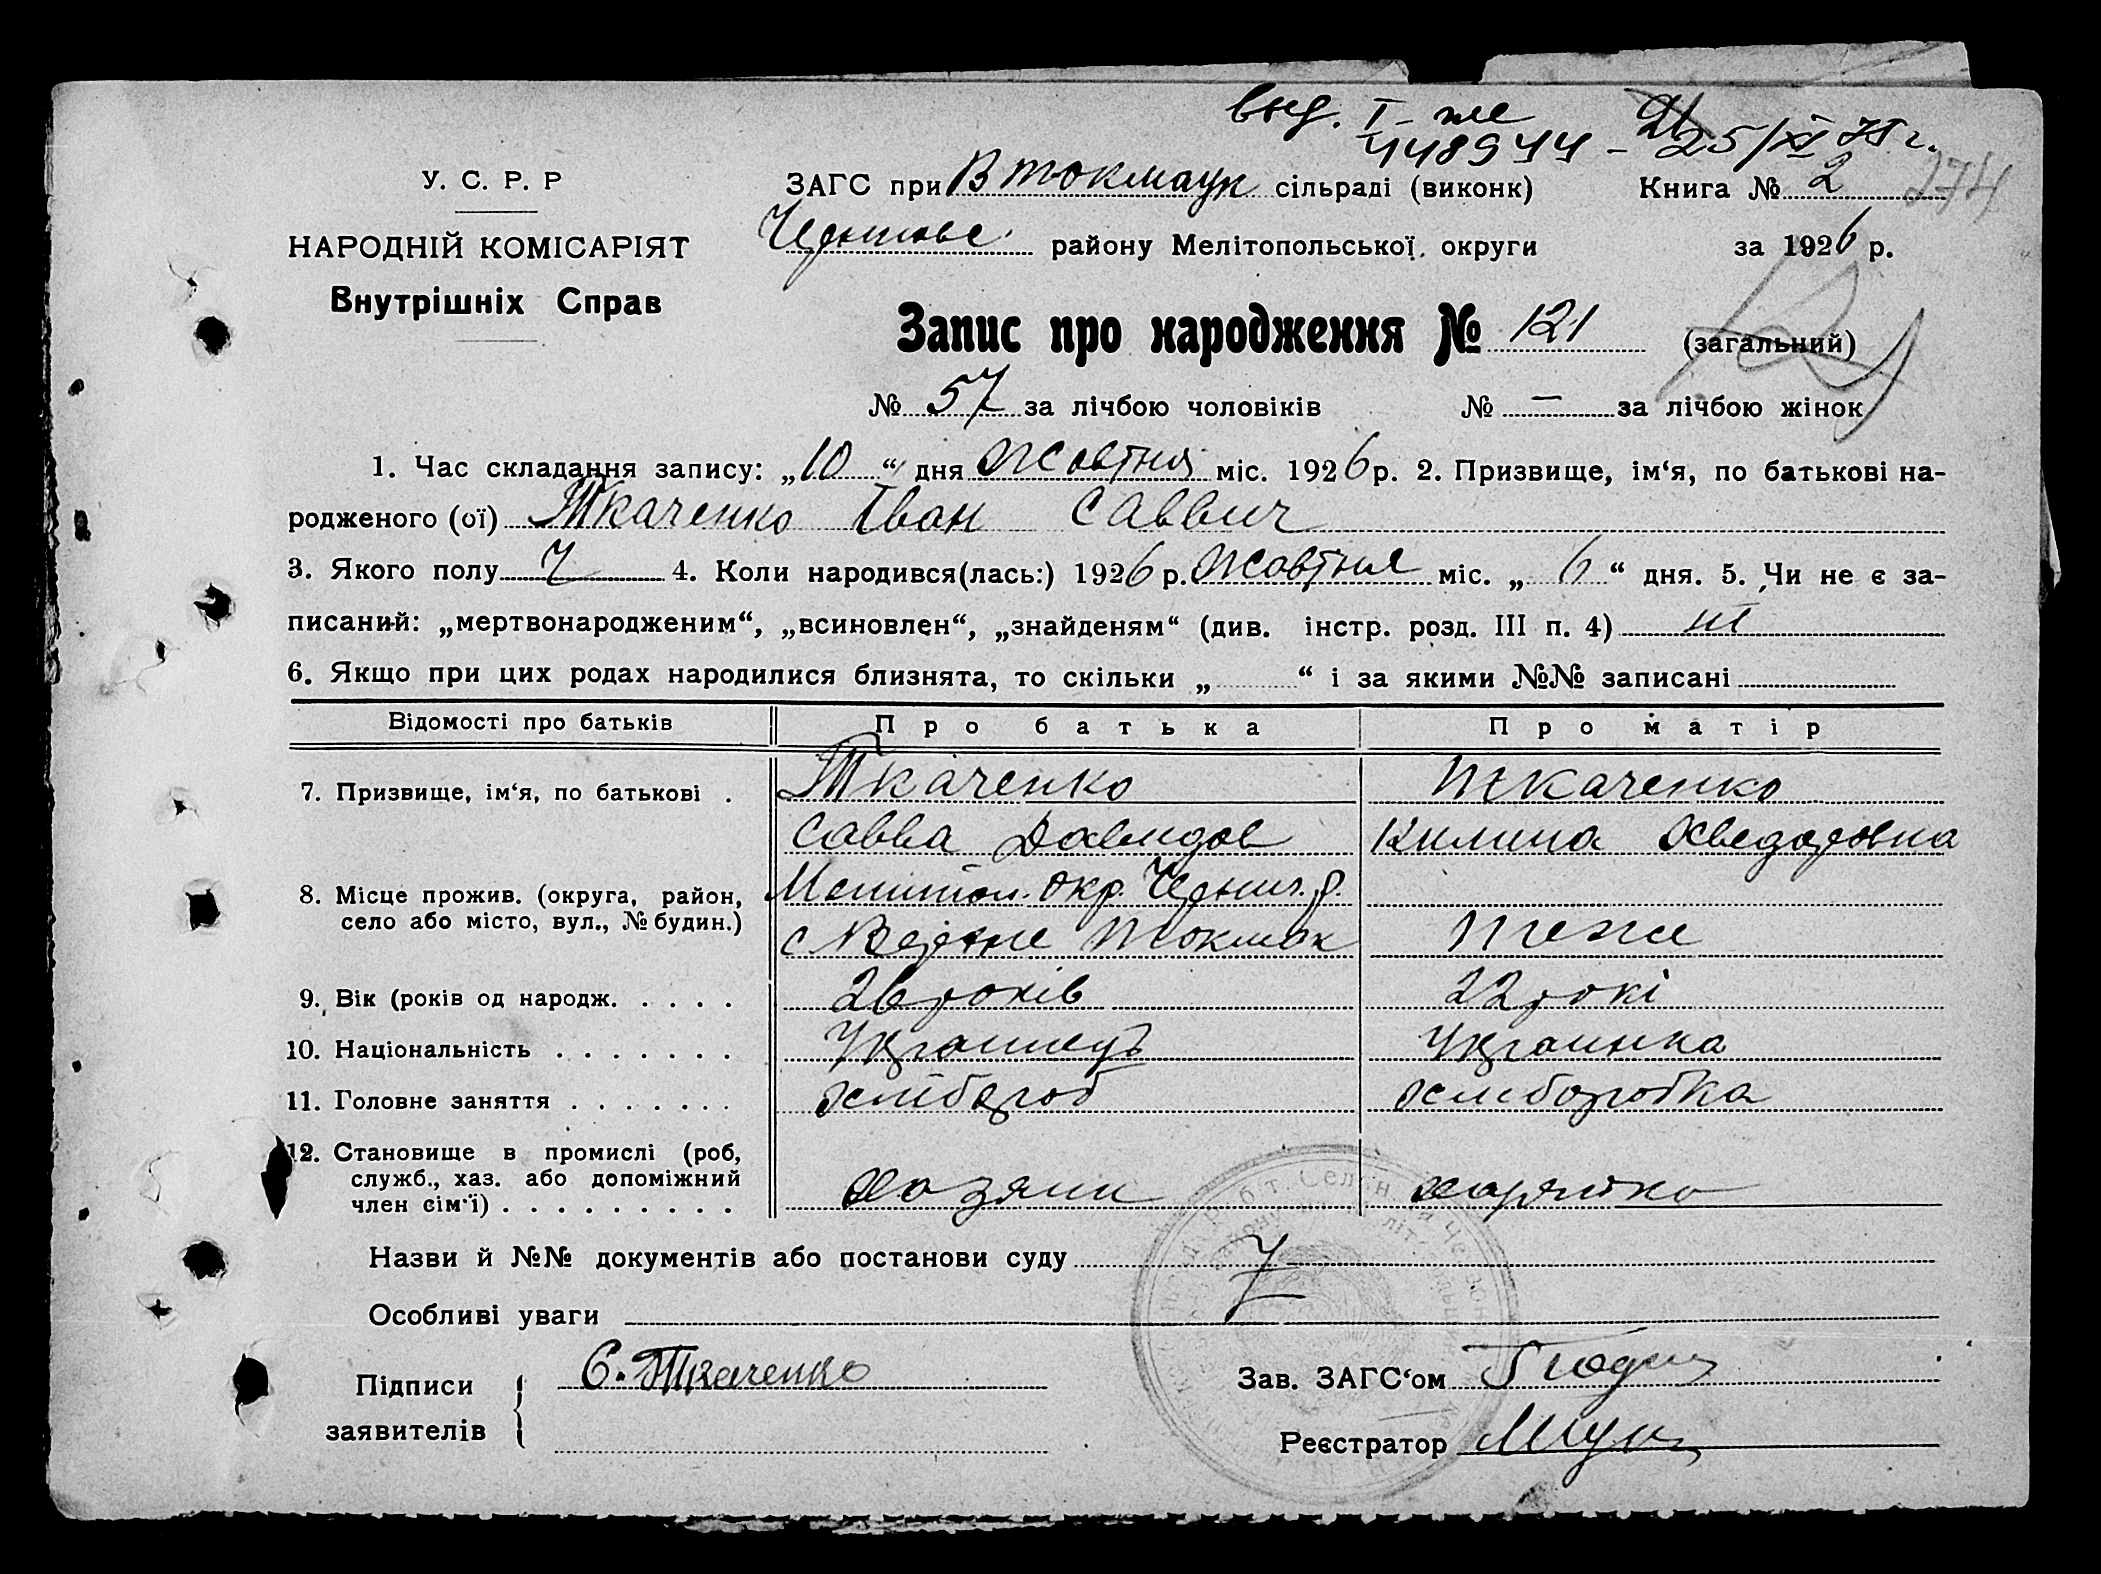 выд. I
448944 – 25/XI 75 г.
У. С. Р. Р
ЗАГС при В Токмаук сільраді (виконк) Книга № 2 274
НАРОДНІЙ КОМІСАРІЯТ
Черниговс. району Мелітопольської округи за 1926 р.
Внутрішніх Справ
Запис про народження № 121 (загальний)
№ 57 за лічбою чоловіків № — за лічбою жінок
1. Час складання запису: „10“ дня Жовтня міс. 1926 р. 2. Призвище, ім‘я, по батькові на-
родженого (ої) Ткаченко Іван Саввич
3. Якого полу Ч 4. Коли народився(лась:) 1926 р. Жовтня міс. „ 6 “ дня. 5. Чи не є за-
писаний: „мертвонародженим“, „всиновлен“, „знайденям“ (див. інстр. розд. III п. 4) ні
6. Якщо при цих родах народилися близнята, то скільки „ “ і за якими №№ записані
Відомості про батьків Про батька Про матір
7. Призвище, ім‘я, по батькові . Ткаченко Ткаченко
Савва Давидов Килина Хведоровна
8. Місце прожив. (округа, район, село або місто, вул., № будин.) Мелитоп. окр. Черниг. р.
с Верхне Токмак Теже
9. Вік (років од народж. . . . . 26 років 22 рокі
10. Національність . . . . . . . Украинець Украинка
11. Головне заняття . . . . . . . хлібороб хлиборобка
12. Становище в промислі (роб,
служб., хаз. або допоміжний
член сім‘ї) . . . . . . . . . хозяин хозяйка
Назви й №№ документів або постанови суду
Особливі уваги
Підписи заявителів { С. Ткаченко
Зав. ЗАГС‘ом
Реєстратор